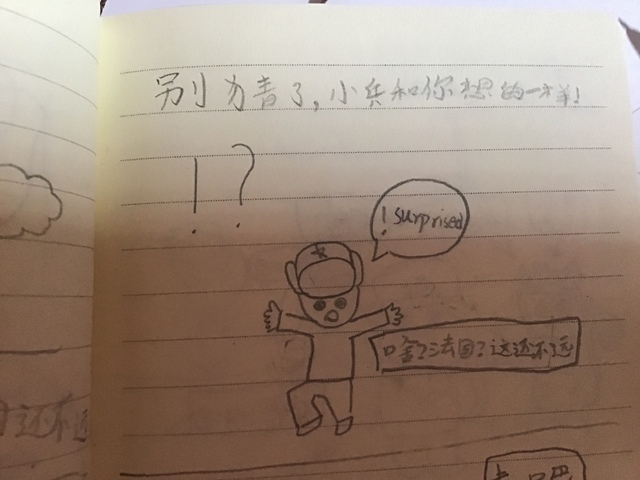 别为害了，小兵和你想的一样！
！？
！surprised
啥？法国？这还不远
还不远
去巴